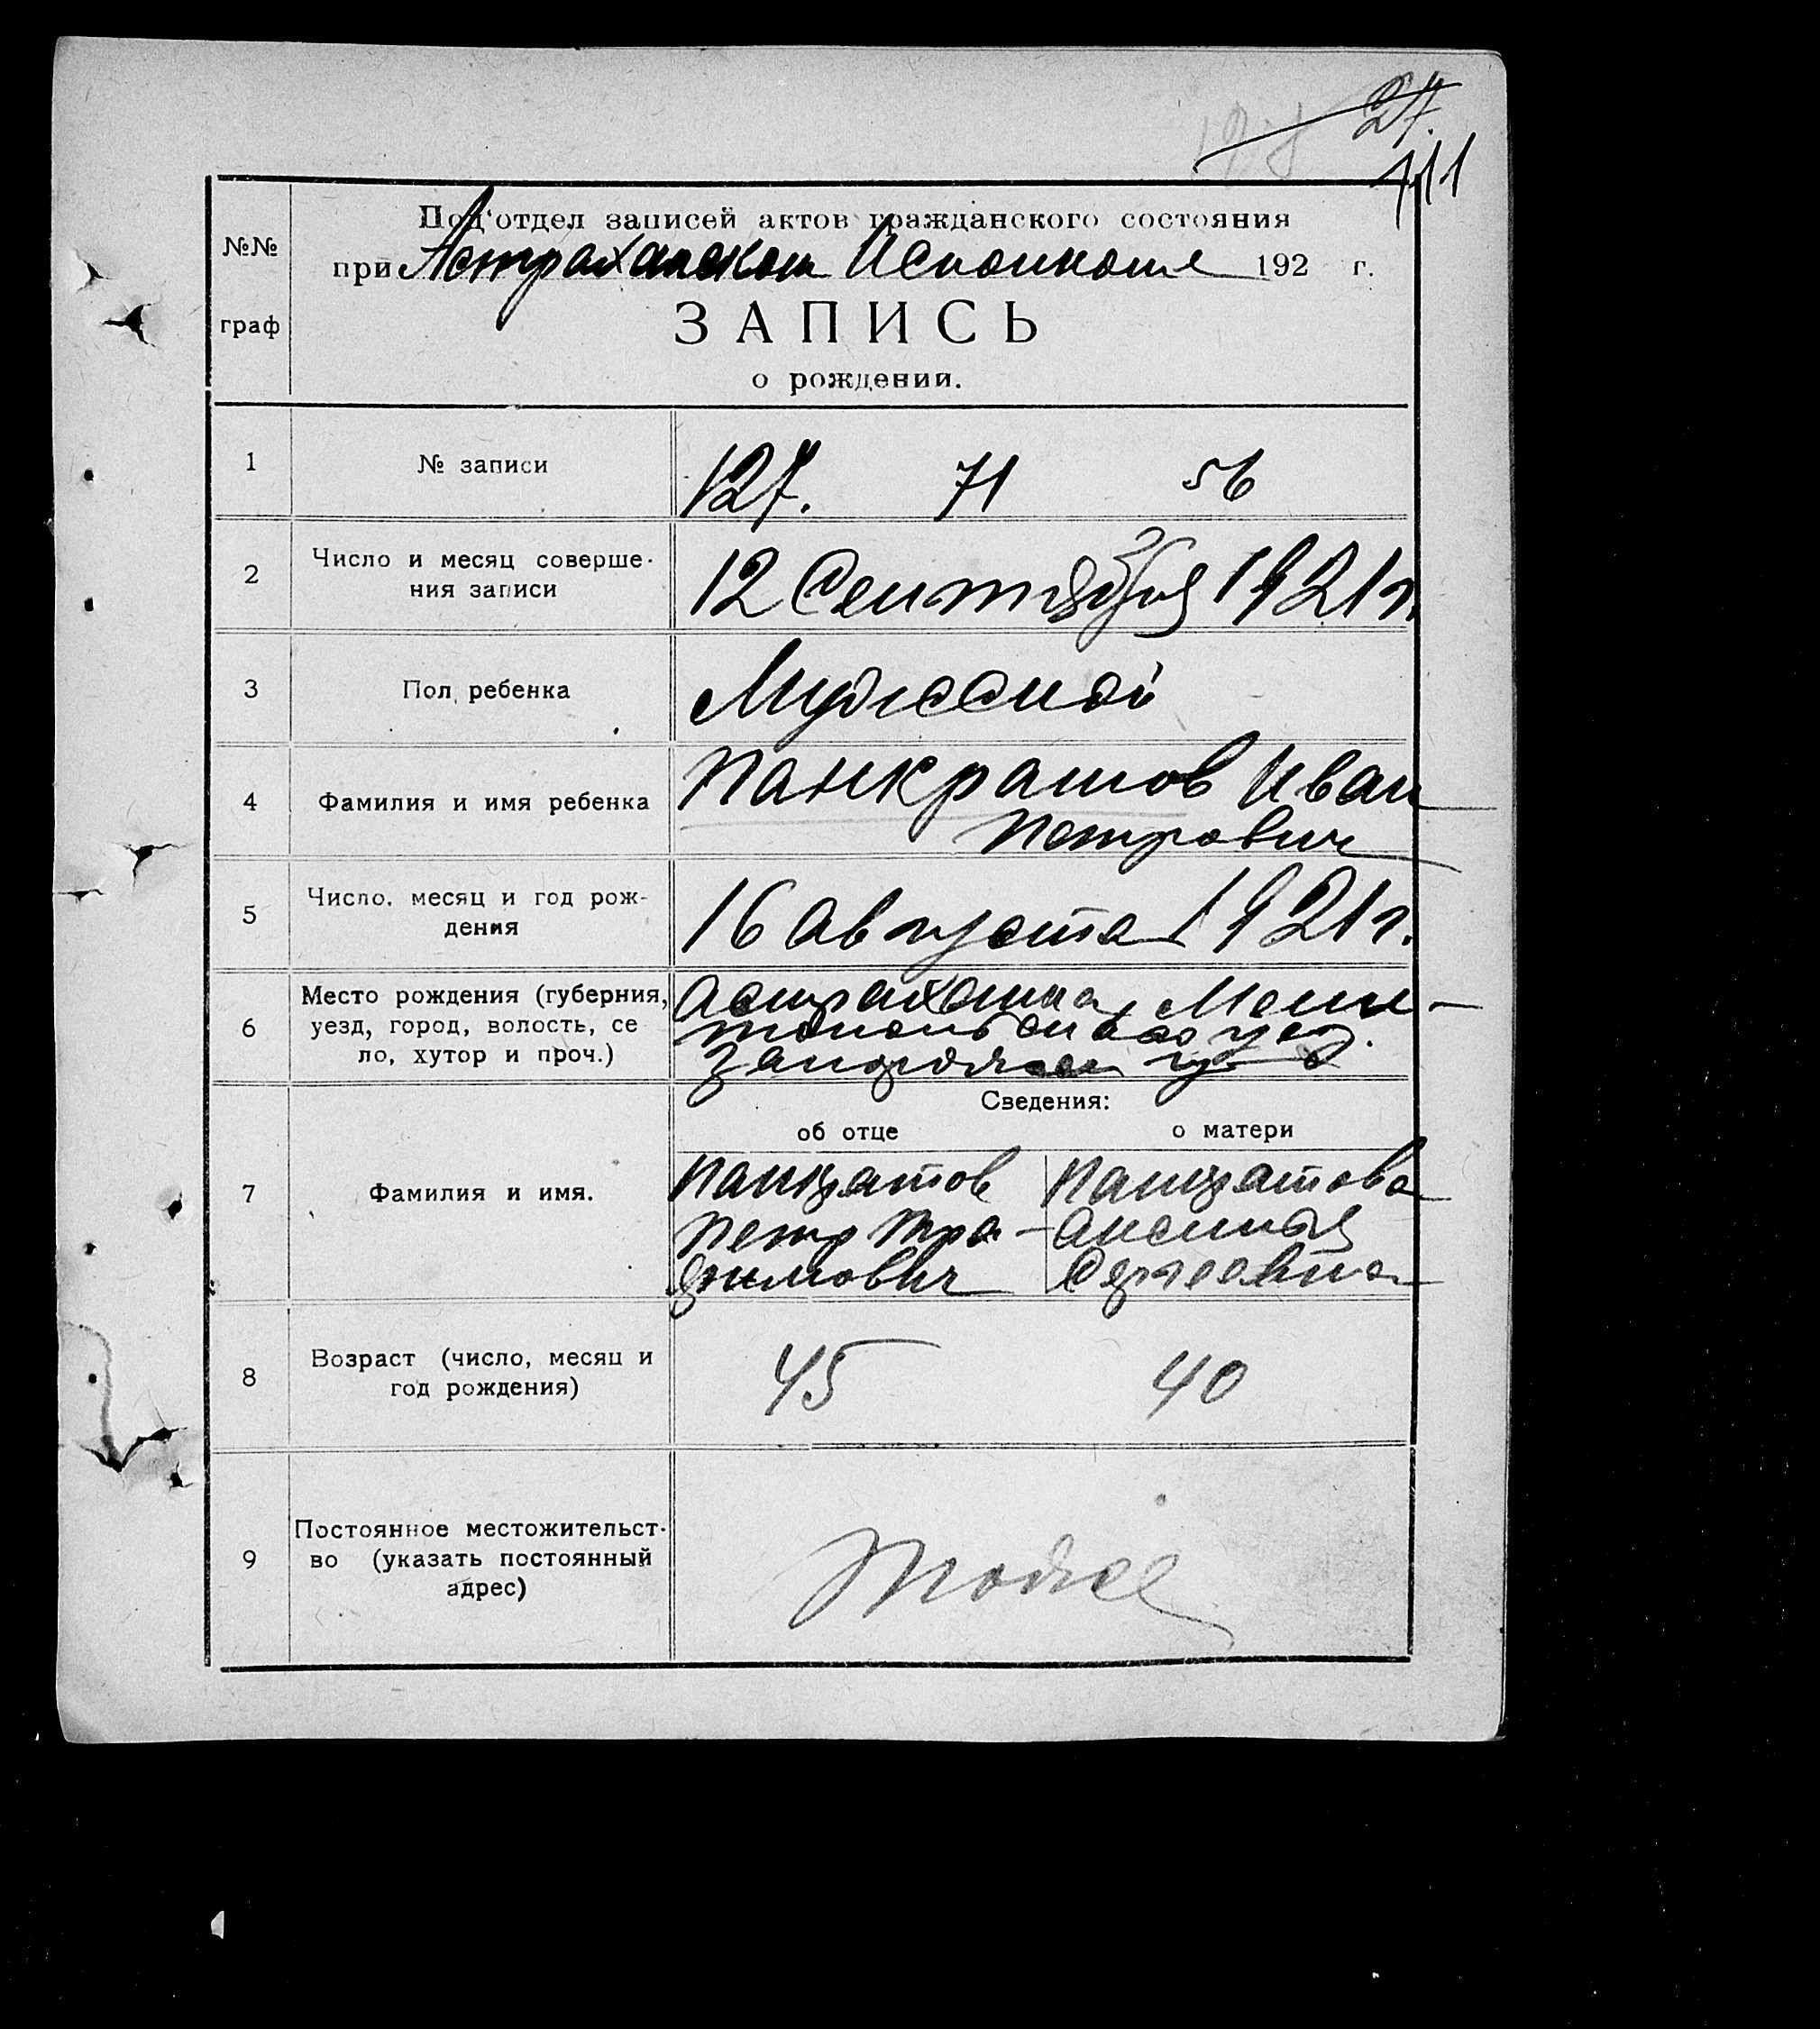 27.
111
Под'отдел записей актов гражданского состояния
№№
при Астраханском Исполкоме 192 г.
граф
ЗАПИСЬ
о рождении.
1 № записи 127. 71 56
2 Число и месяц соверше-
ния записи 12 Сентября 1921 г.
3 Пол ребенка Мужской
4 Фамилия и имя ребенка Панкратов Иван
Петрович
5 Число, месяц и год рож-
дения 16 августа 1921 г.
6 Место рождения (губерния,
уезд, город, волость, се
ло, хутор и проч.)
Астраханка, Мели-
топольского уезд.
Запорожской губ
Сведения:
об отце о матери
7 Фамилия и имя.
Панкратов Панкратова
Петр Тро- Аксиния
фимович Сергеевна
8 Возраст (число, месяц и
год рождения) 45 40
9 Постоянное местожительст-
во (указать постоянный
адрес) тоже